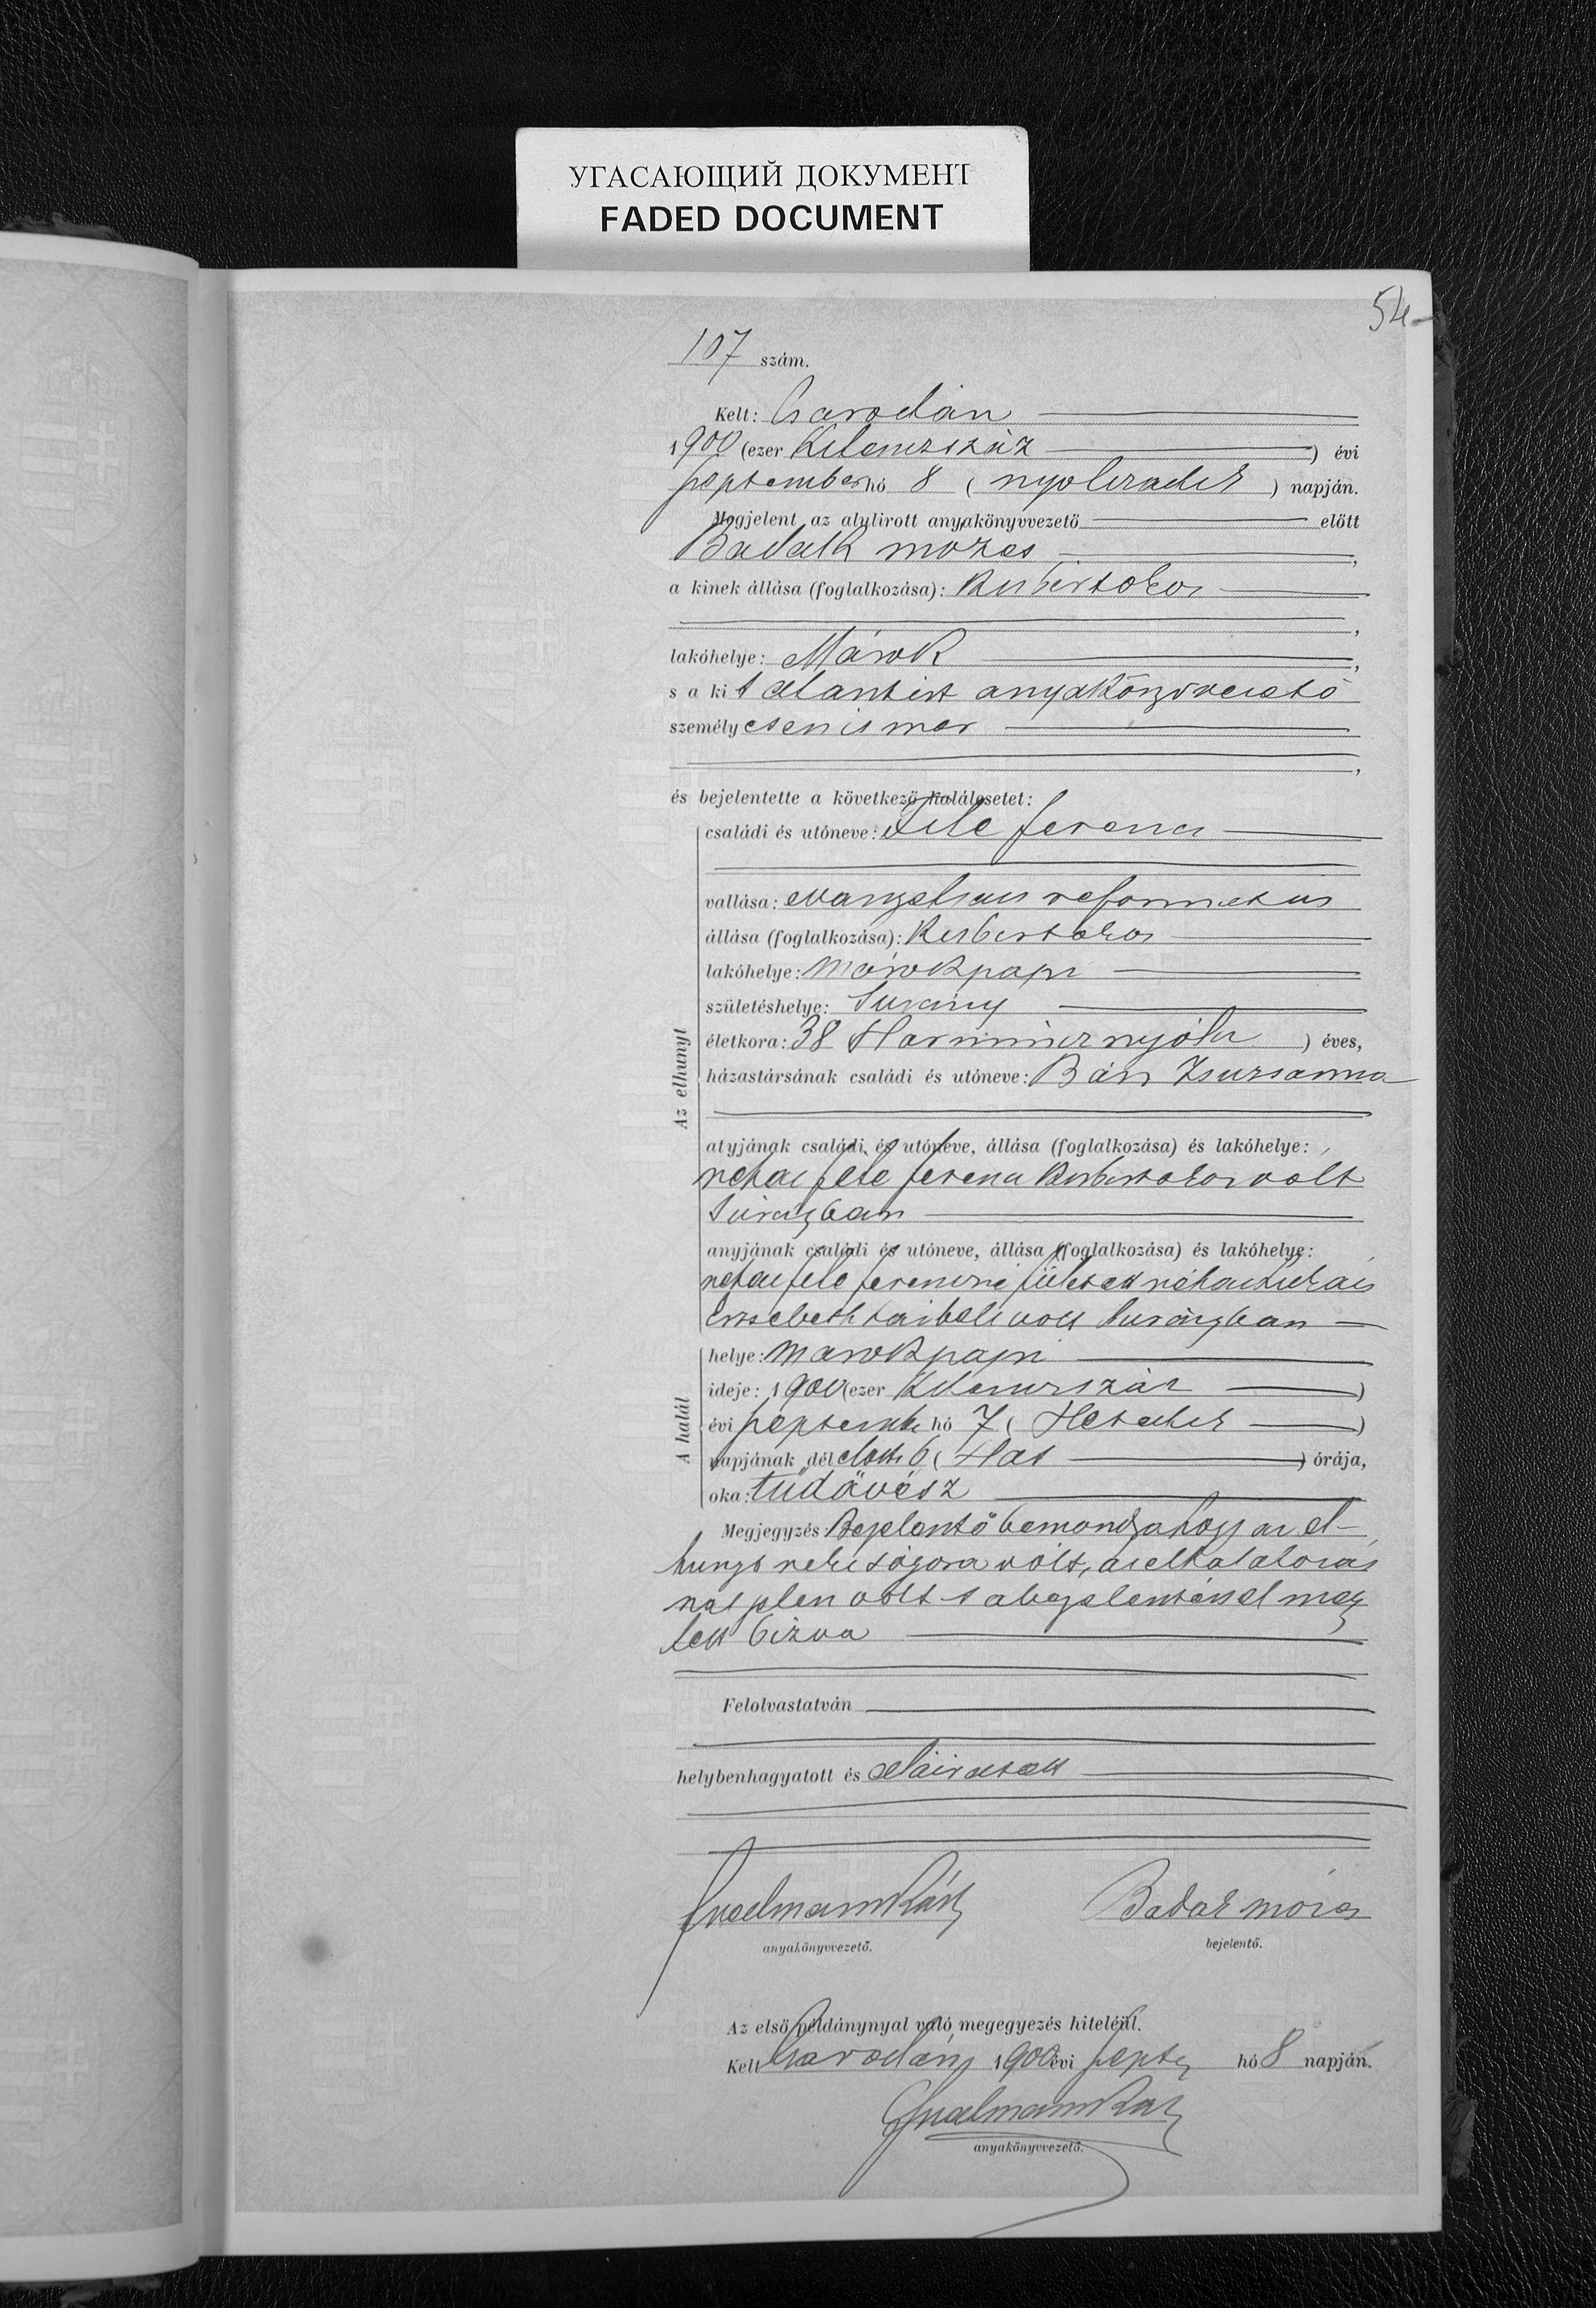 УГАСАЮЩИЙ ДОКУМЕНТ
FADED DOCUMENT
54
107 szám.
Kelt: Csarodán
1900 (ezer kilenczszáz) évi
September hó 8 (nyolczadik) napján.
Megjelent az alulirott anyakönyvvezető előtt
Badak mozes
a kinek állása (foglalkozása): kisbirtokos
lakóhelye: Márok
s a kit alantirt anyakönyvvezető
személyesen ismer
és bejelentette a következő halálesetet:
Az elhunyt
családi és utóneve: Fele ferencz
vallása: evangelicus reformatus
állása (foglalkozása): kisbirtokos
lakóhelye: Márokpapi
születéshelye: Surány
életkora: 38 Harmincznyolcz) éves,
házastársának családi és utóneve: Bán Zsuzsanna
atyjának családi és utóneve, állása (foglalkozása) és lakóhelye:
néhai fele ferencz kisbirtokos volt
Surányban
anyjának családi és utóneve, állása (foglalkozása) és lakóhelye:
néhai fele ferenczné született néhai
Erzsebeth volt Surányban
A halál
helye: Marokpapi
ideje: 1900 (ezer kilenczszáz)
évi September hó 7 (Hetedik)
napjának délelőtti 6 (Hat) órája,
oka: tüdővész
Megjegyzés: Bejelentő bemondja hogy az el-
hunyt neki sógora volt, az elhalálozás
nál jelen volt s a bejelentéssel meg
lett bizva
Felolvastatván
helybenhagyatott és aláiratott
anyakönyvvezető.
Badak mózes
bejelentő.
Az első példánynyal való megegyezés hiteléül.
Kelt Csarodán, 1900 évi Sept hó 8 napján.
anyakönyvvezető.